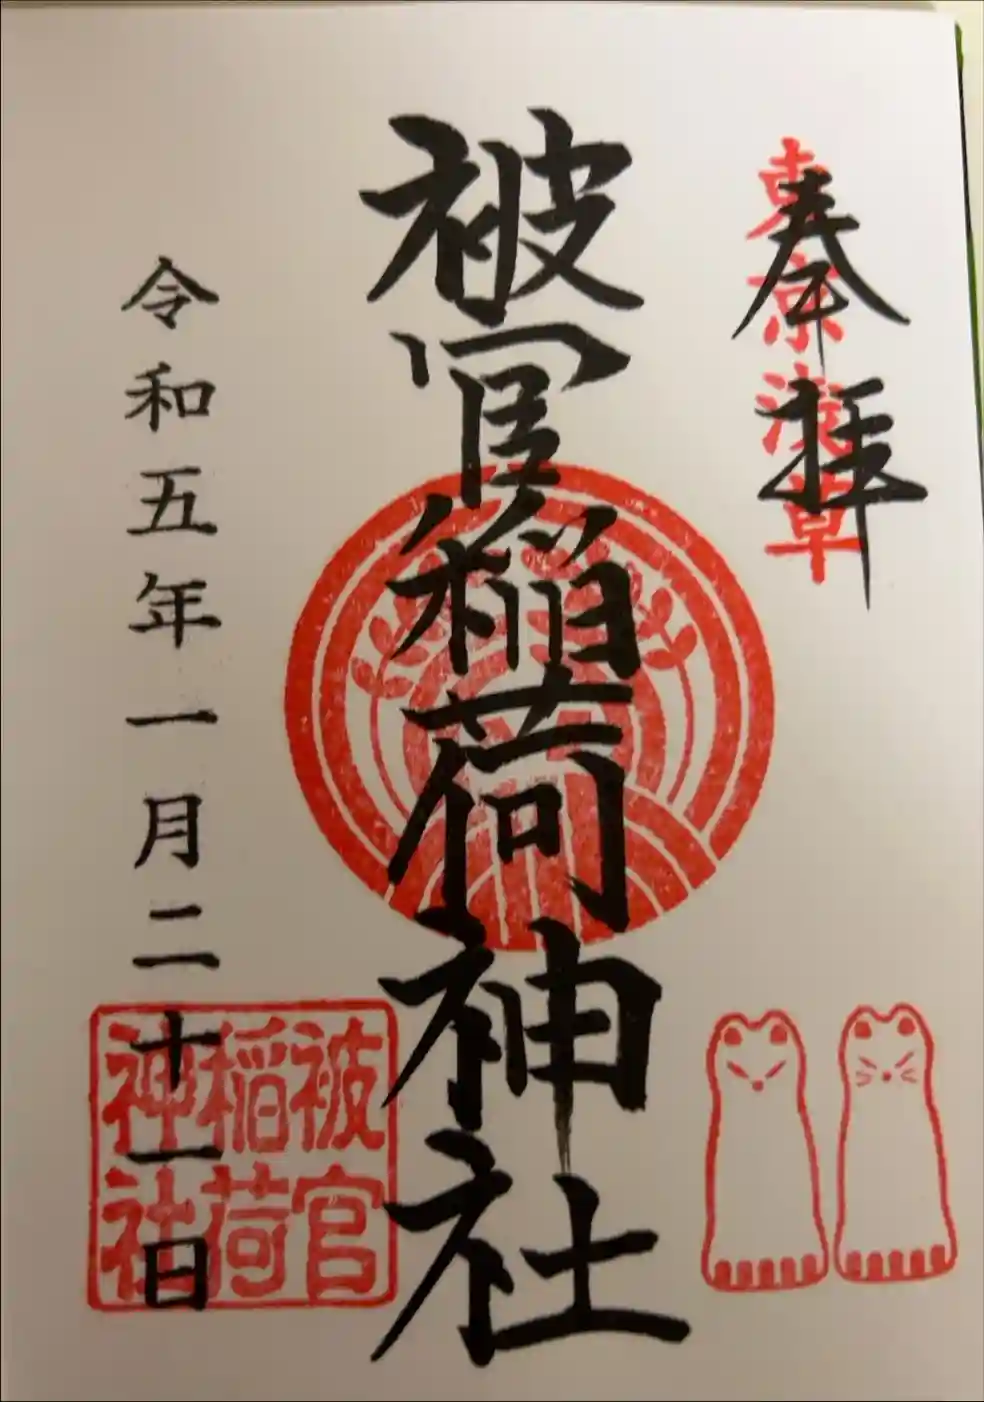 東京浅草
奉拝
被官稲荷神社
被官
稲荷
神社
令和五年一月二十一日